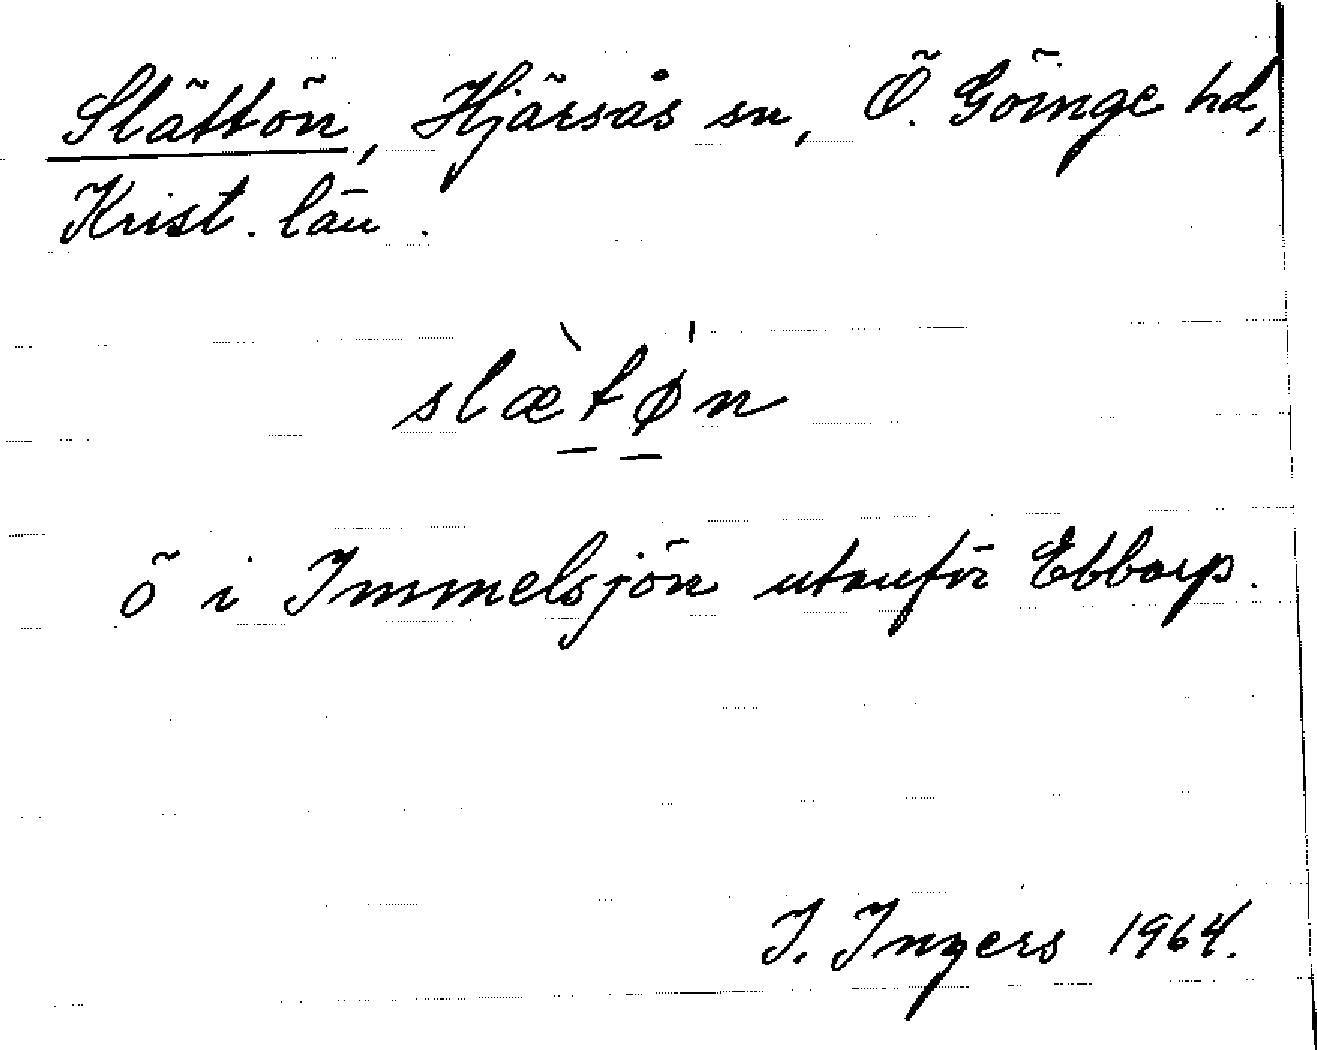 Slättön, Hjärsås sn, Ö. Göinge hd,
Krist. län.
slæ̀tø̍n
ö i Immelsjön utanför Ebbarp.
I. Ingers 1964.